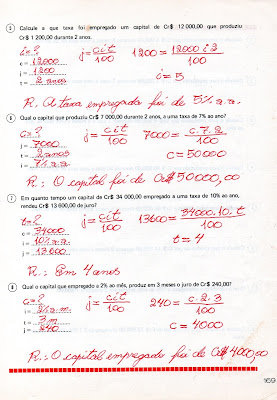 5 Calcule a que taxa foi empregado um capital de Cr$ 12 000,00 que produziu
Cr$ 1 200,00 durante 2 anos.
i = ?
c = 12000
j = 1200
t = 2 anos
j = cit/100
1200 = 12000 i 2/100
i = 5
R. A taxa empregada foi de 5% a.a.
6 Qual o capital que produziu Cr$ 7 000,00 durante 2 anos, a uma taxa de 7% ao ano?
c = ?
j = 7000
t = 2 anos
i = 7% a.a.
j = cit/100
7000 = c.7.2/100
c = 50000
R.: O capital foi de Cr$ 50000,00
7 Em quanto tempo um capital de Cr$ 34 000,00 empregado a uma taxa de 10% ao ano,
rendeu Cr$ 13 600,00 de juro?
t = ?
c = 34000
i = 10% a.a.
j = 13600
j = cit/100
13600 = 34000.10.t/100
t = 4
R.: Em 4 anos
8 Qual o capital que empregado a 2% ao mês, produz em 3 meses o juro de Cr$ 240,00?
c = ?
i = 2% a.m.
t = 3 m
j = 240
j = cit/100
240 = c.2.3/100
c = 4000
R.: O capital empregado foi de Cr$ 4000,00
169